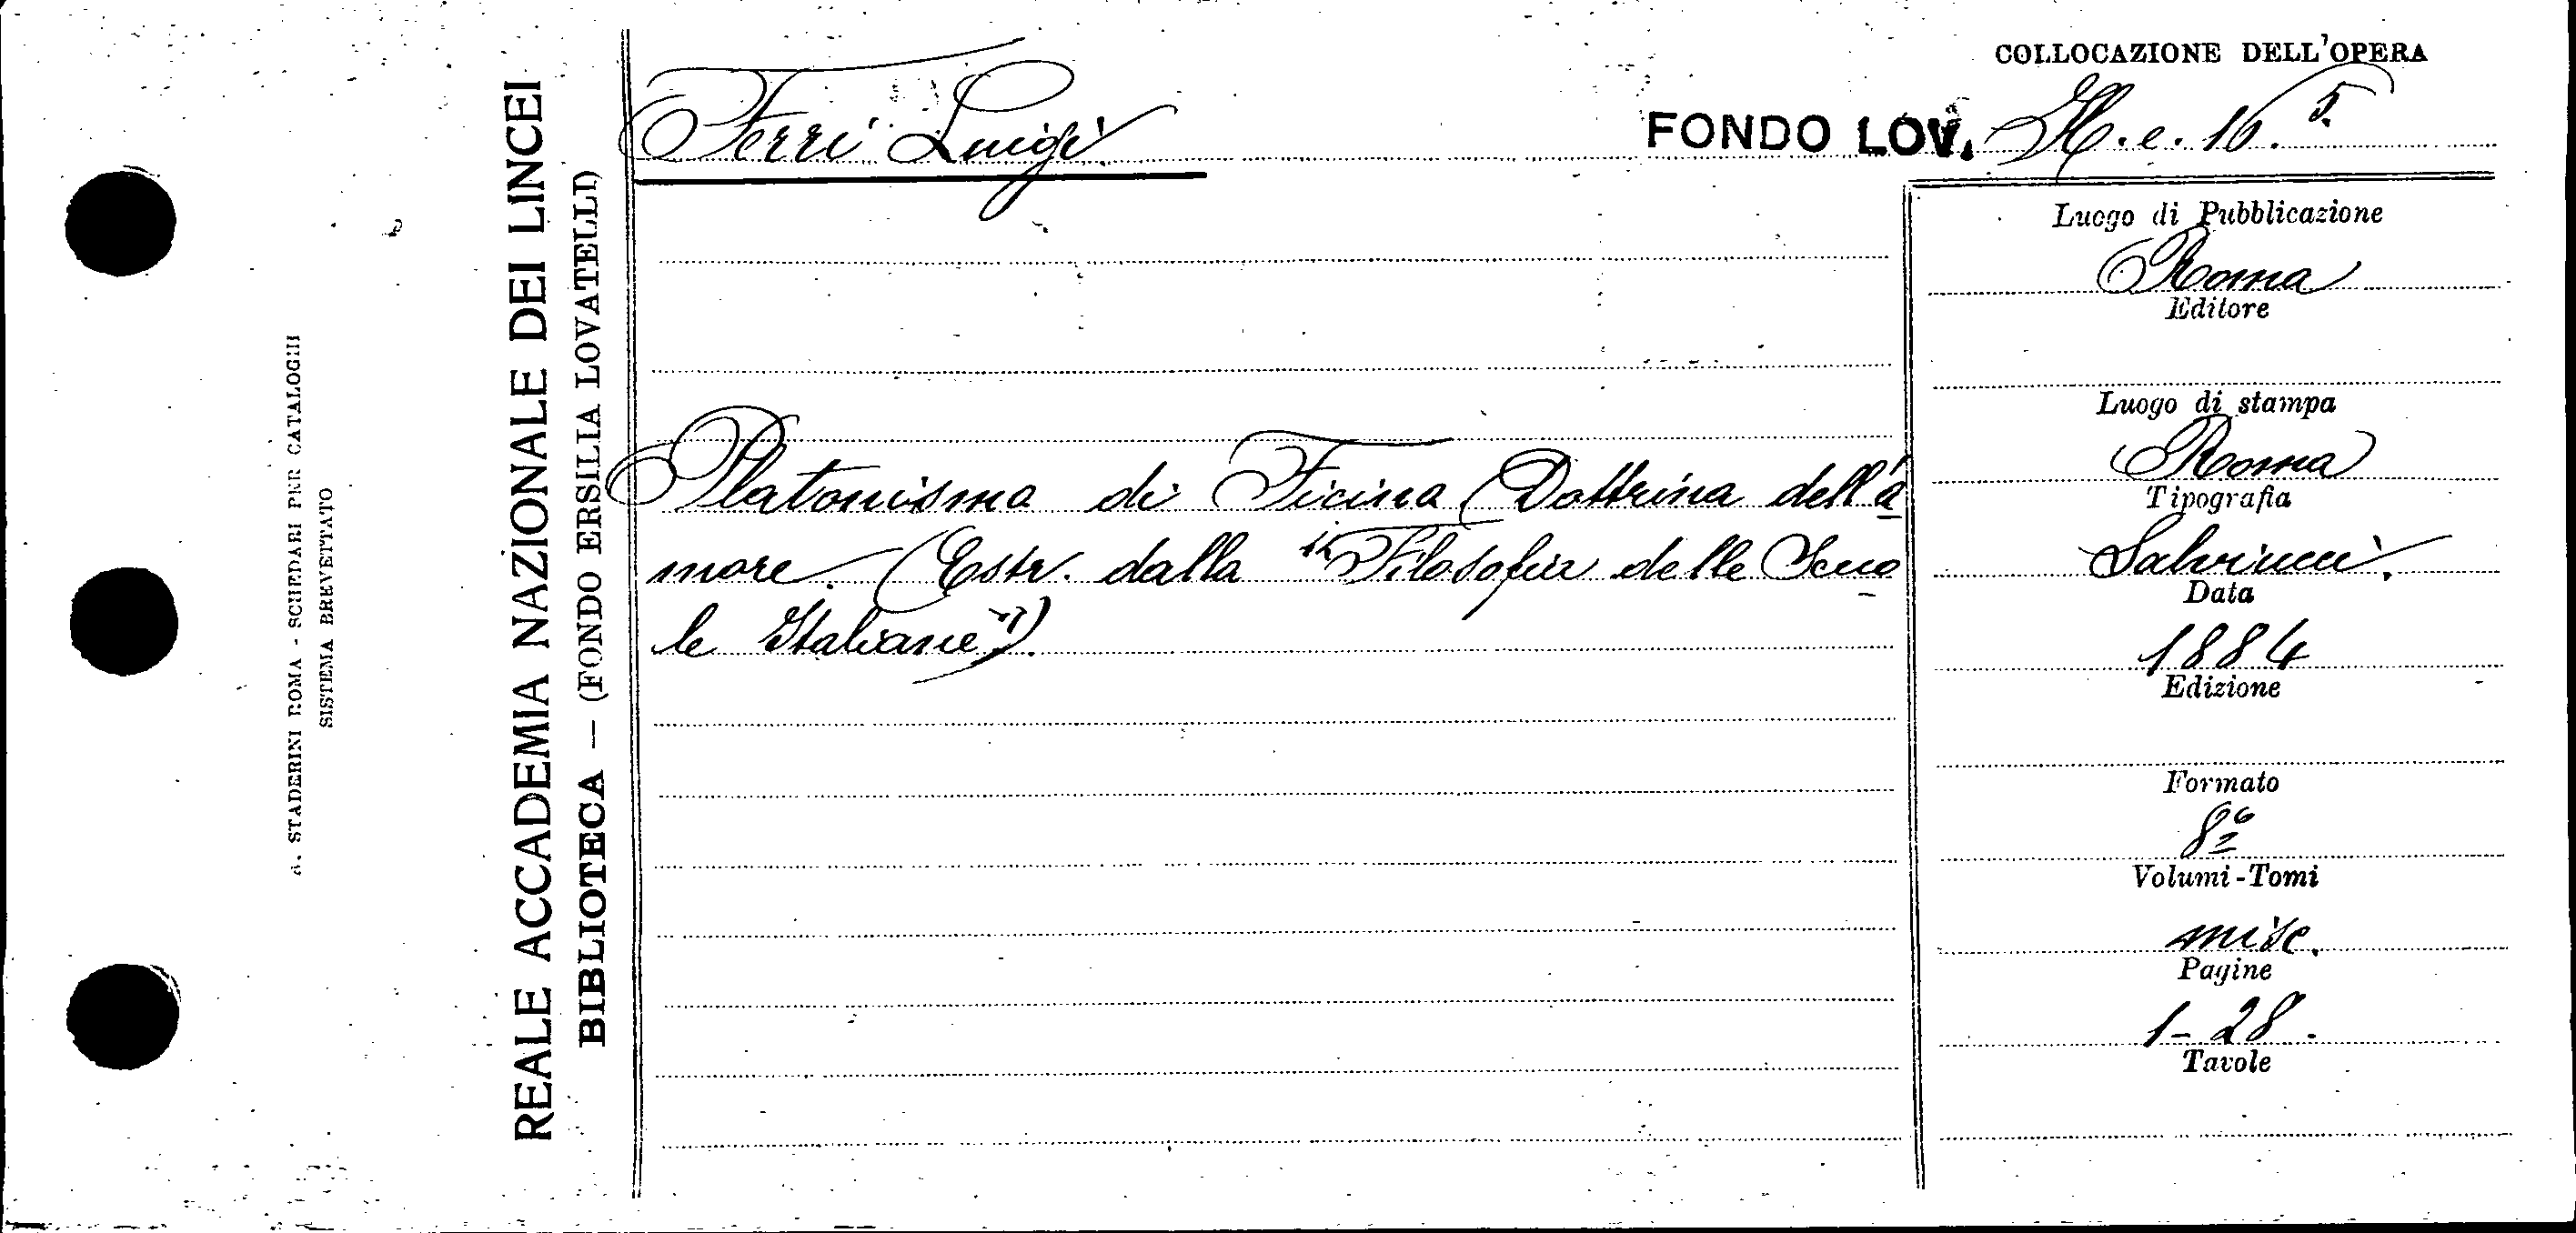 COLLOCAZIONE DELL'OPERA
Ferri Luigi
FONDO LOV. H. e. 16. 5.
Platonisma di Ficina (Dottrina dell'a
more. (Estr. dalla "Filosofia delle Scuo
le Italiane")
Luogo di Pubblicazione
Roma
Editore
Luogo di stampa
Roma
Tipografia
Salviucci.
Data
1884
Edizione
Formato
8º
Volumi-Tomi
misc.
Pagine
1-28.
Tavole
REALE ACCADEMIA NAZIONALE DEI LINCEI
BIBLIOTECA — (FONDO ERSILIA LOVATELLI)
A. STADERINI ROMA - SCHEDARI PER CATALOGHI
SISTEMA BREVETTATO